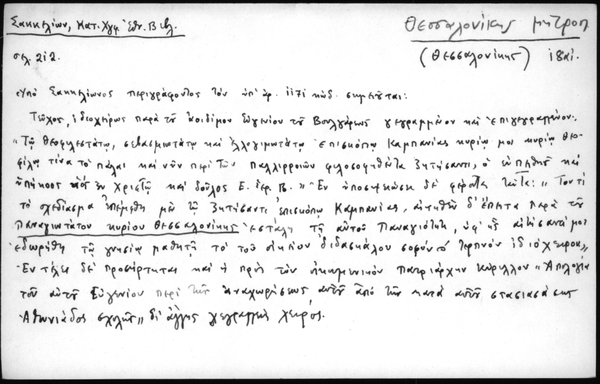 Σακκελίων, Κατ. Χγφ Ἐθν. Βιβλ.
Θεσσαλονίκης μητροπ
(Θεσσαλονίκης) 18 αἰ.
σελ. 212.
Ὑπὸ Σακκελίωνος περιγράφοντος τὸν ὑπ' ἀρ. 1171 κώδ. σημειοῦται:
Τεῦχος, ἰδιοχείρως παρὰ τοῦ ἀοιδίμου Εὐγενίου τοῦ Βουλγάρεως γεγραμμένον καὶ ἐπιγεγραμμένον.
"Τῷ θεοφιλεστάτῳ, σεβασμιωτάτῳ καὶ ἐλλογιμωτάτῳ ἐπισκόπῳ Καμπανίας κυρίῳ μοι κυρίῳ Θεο
φίλῳ τινα τὸ πάλαι καὶ νῦν περὶ τῶν παλιρροιῶν φιλοσοφηθέντα ζητήσαντι, ὁ εὐπειθὴς καὶ
ὑπήκοος ἐν Χριστῷ καὶ δοῦλος Ε. ἱερ. Β." Ἐν ὑποσημειώσει δὲ φέρεται ταῦτα: "Τουτὶ
τὸ σχεδίασμα ἐπέμφθη μὲν τῷ ζητήσαντι ἐπισκόπῳ Καμπανίας, αἰτηθὲν δ' ἔπειτα παρὰ τοῦ
Παναγιωτάτου κυρίου Θεσσαλονίκης ἐστάλη τῇ αὐτοῦ Παναγιότητι, ὑφ' ἧς αἰτήσαντί μοι
ἐδωρήθη τῷ γνησίῳ μαθητῇ τὸ τοῦ οἰκείου διδασκάλου σοφόν τε τερπνὸν ἰδιόχειρον"
Ἐν τέλει δὲ προσήρτηται καὶ ἡ πρὸς τὸν οἰκουμενικὸν Πατριάρχην Κύριλλον "Ἀπολογία
τοῦ αὐτοῦ Εὐγενίου περὶ τῆς ἀναχωρήσεως αὐτοῦ ἀπὸ τῆς κατὰ αὐτοῦ στασιασάσης
Ἀθωνιάδος σχολῆς" δι' ἄλλης γεγραμμένη χειρός.